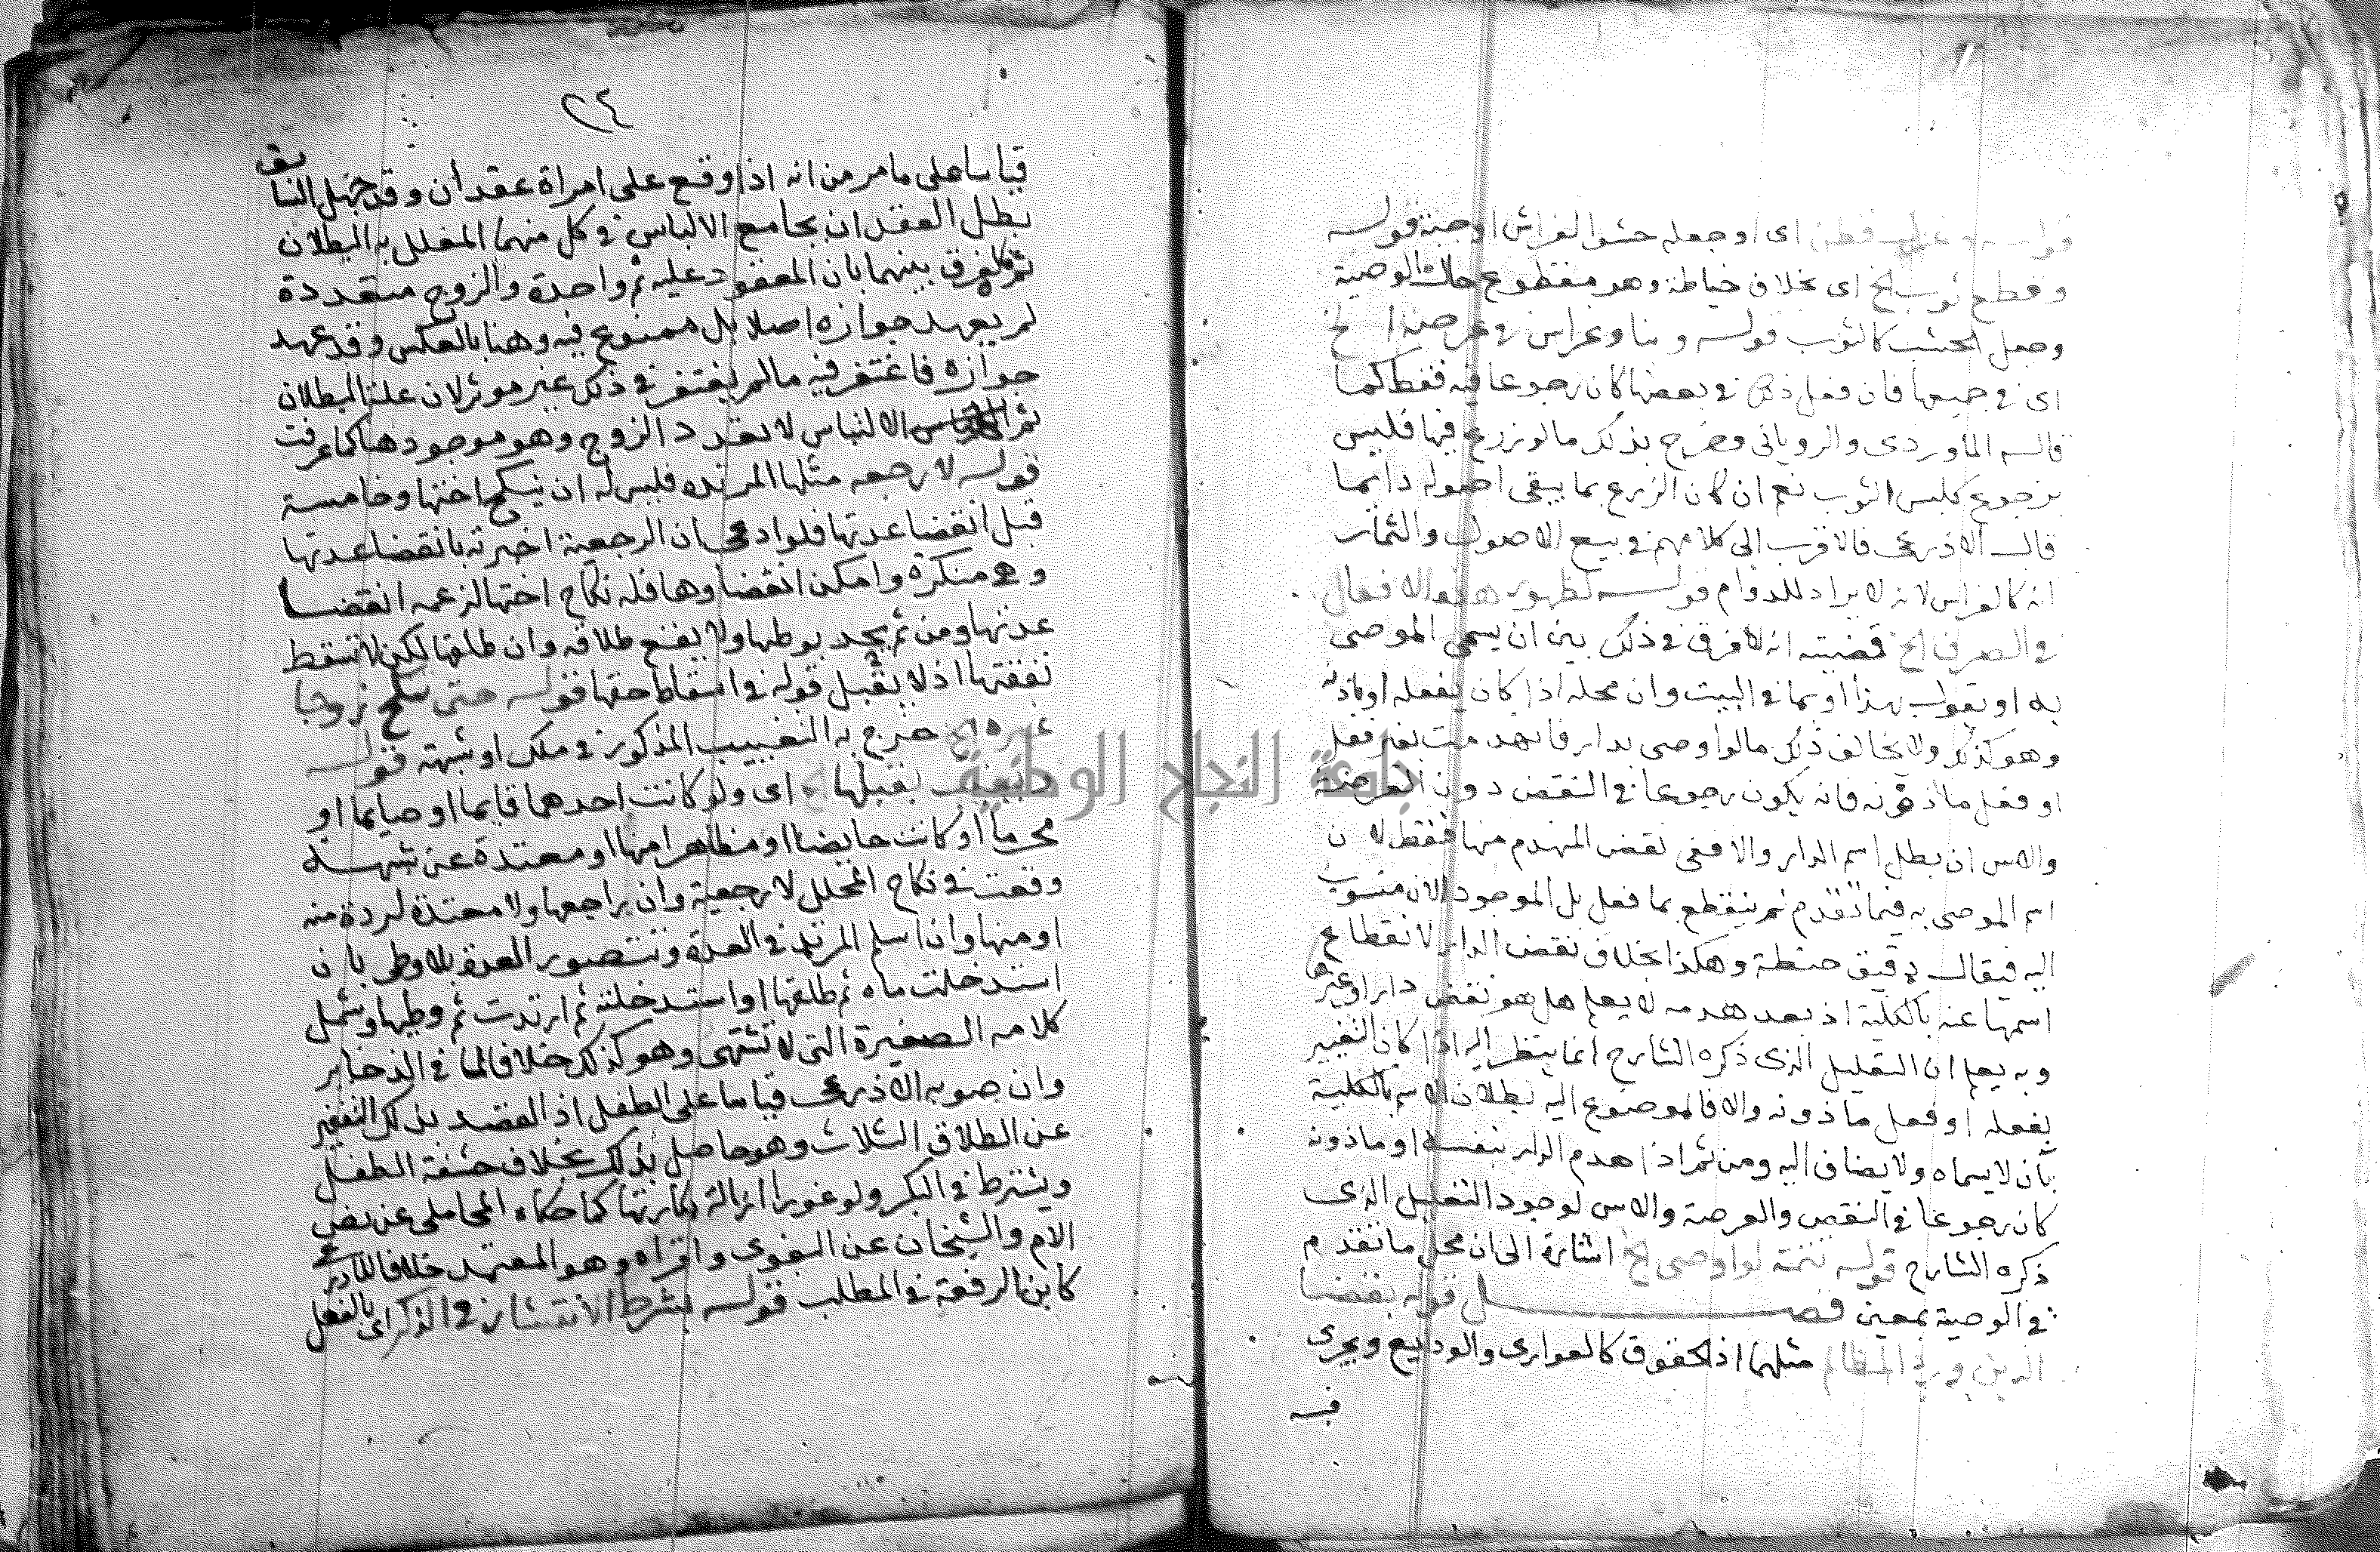 قطن اى او جعله حشو الفراش او جبة قوله
وقطع ثوب الخ اى بخلاف خياطة وهو مقطوع حال الوصية
وجعل الخشب كالثوب قوله وبنا وغراس في عرصة الخ
اى في جميعها فان فعل ذلك في بعضها كان رجوعا فيه فقط كما
قاله الماوردى والرويانى وخرج بذلك ما لو زرع فيها فليس
برجوع كلبس الثوب نعم ان كان الزرع مما يبقى اصوله دايما
قال الاذرعى فالاقرب الى كلامهم في بيع الاصول والثمار
انه كالغراس لانه لا يراد للدوام قوله لظهور هذه الافعال
في الصرف الخ قضيته انه لا فرق في ذلك بين ان يسمى الموصى
به او يقول بهذا او بما في البيت وان محله اذا كان بفعله او باذنه
وهو كذلك ولا يخالف ذلك ما لو اوصى بدار فانهدمت بغير فعل
او فعل ماذونه فانه يكون رجوعا في النقض دون العرصة
والاس ان بطل اسم الدار والا ففى نقض المنهدم منها فقط لان
اسم الموصى به فيما تقدم لم ينقطع بما فعل بل الموجود الان منسوب
اليه فيقال دقيق حنطة وهكذا بخلاف نقض الدار لانقطاع
اسمها عنه بالكلية اذ بعد هدمه لا يعلم هل هو نقض دار او غيرها
وبه يعلم ان التعليل الذى ذكره الشارح انما ينتظر اليه اذا كان التغيير
بفعله او فعل ماذونه والا فالموضوع اليه بطلان الاسم بالكلية
بان لا يسماه ولا يضاف اليه ومن ثم اذا هدم الدار بنفسه او ماذونه
كان رجوعا في النقض والعرصة والاس لوجود التعليل الذى
ذكره الشارح قوله تتمة لو اوصى الخ اشارة الى ان محل ما تقدم
في الوصية بمعين فصل قوله بقضا
الدين ورد المظالم مثلهما اذ الحقوق كالعوارى والودايع ويجرى
فيه
٢٤
قياسا على ما مر من انه اذا وقع على امراة عقدان وقد جهل السابق
بطل العقدان بجامع الالباس في كل منهما المعلل به البطلان
ثم والفرق بينهما بان المعقود عليه ثم واحدة والزوج متعددة
لم يعهد جوازه اصلا بل ممنوع فيه وهنا بالعكس وقد عهد
جوازه فاغتفر فيه ما لم يغتفر في ذلك غير موثر لان علة البطلان
ثم الالتباس لا تعدد الزوج وهو موجود هنا كما عرفت
قوله لا رجعه مثلها المرتده فليس له ان ينكح اختها وخامسة
قبل انقضا عدتها فلو ادعى ان الرجعية اخبرته بانقضا عدتها
وهى منكرة وامكن انقضاوها فله نكاح اختها لزعمه انقضا
عدتها ومن ثم يحد بوطها ولا يقع طلاقه وان طلقها لكن لا تسقط
نفقتها اذ لا يقبل قوله في اسقاط حقها قوله حتى تنكح زوجا
غيره الخ خرج به التغييب المذكور في ملك او شبهة قوله
بقبلها اى ولو كانت احدهما قايما او صايما او
محرما او كانت حايضا او مظاهرا منها او معتدة عن شبهه
وقعت في نكاح المحلل لا رجعية وان راجعها ولا معتدة لردة منه
او منها وان اسلم المرتد في العدة وتتصور العدة بلا وطى بان
استدخلت ماه ثم طلقها او استدخلته ثم ارتدت ثم وطيها وشمل
كلامه الصغيرة التى لا تشتهى وهو كذلك خلافا لما في الذخاير
وان صوبه الاذرعى قياسا على الطفل اذ القصد بذلك التنفير
عن الطلاق الثلاث وهو حاصل بذلك بخلاف حشفة الطفل
ويشترط في البكر ولو غورا ازالة بكارتها كما حكاه المحاملى عن نص
الام والشيخان عن البغوى واقراه وهو المعتمد خلافا للاذرعى
كابن الرفعة في المطلب قوله بشرط الانتشار في الذكر اى بالفعل
جامعة النجاح الوطنية